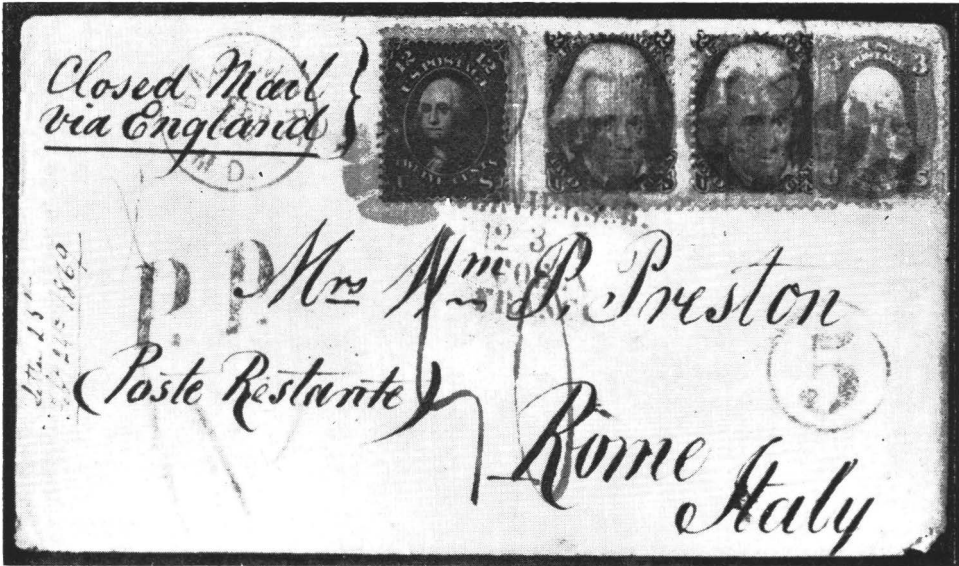 Closed Mail
via England
12 12
U.S. POSTAGE
TWELVE CENTS
U S
U S
U S
3 3
U S
D
12 3
P.P.
Mrs Wm P. Preston
(Poste Restante)
5
Rome
Italy